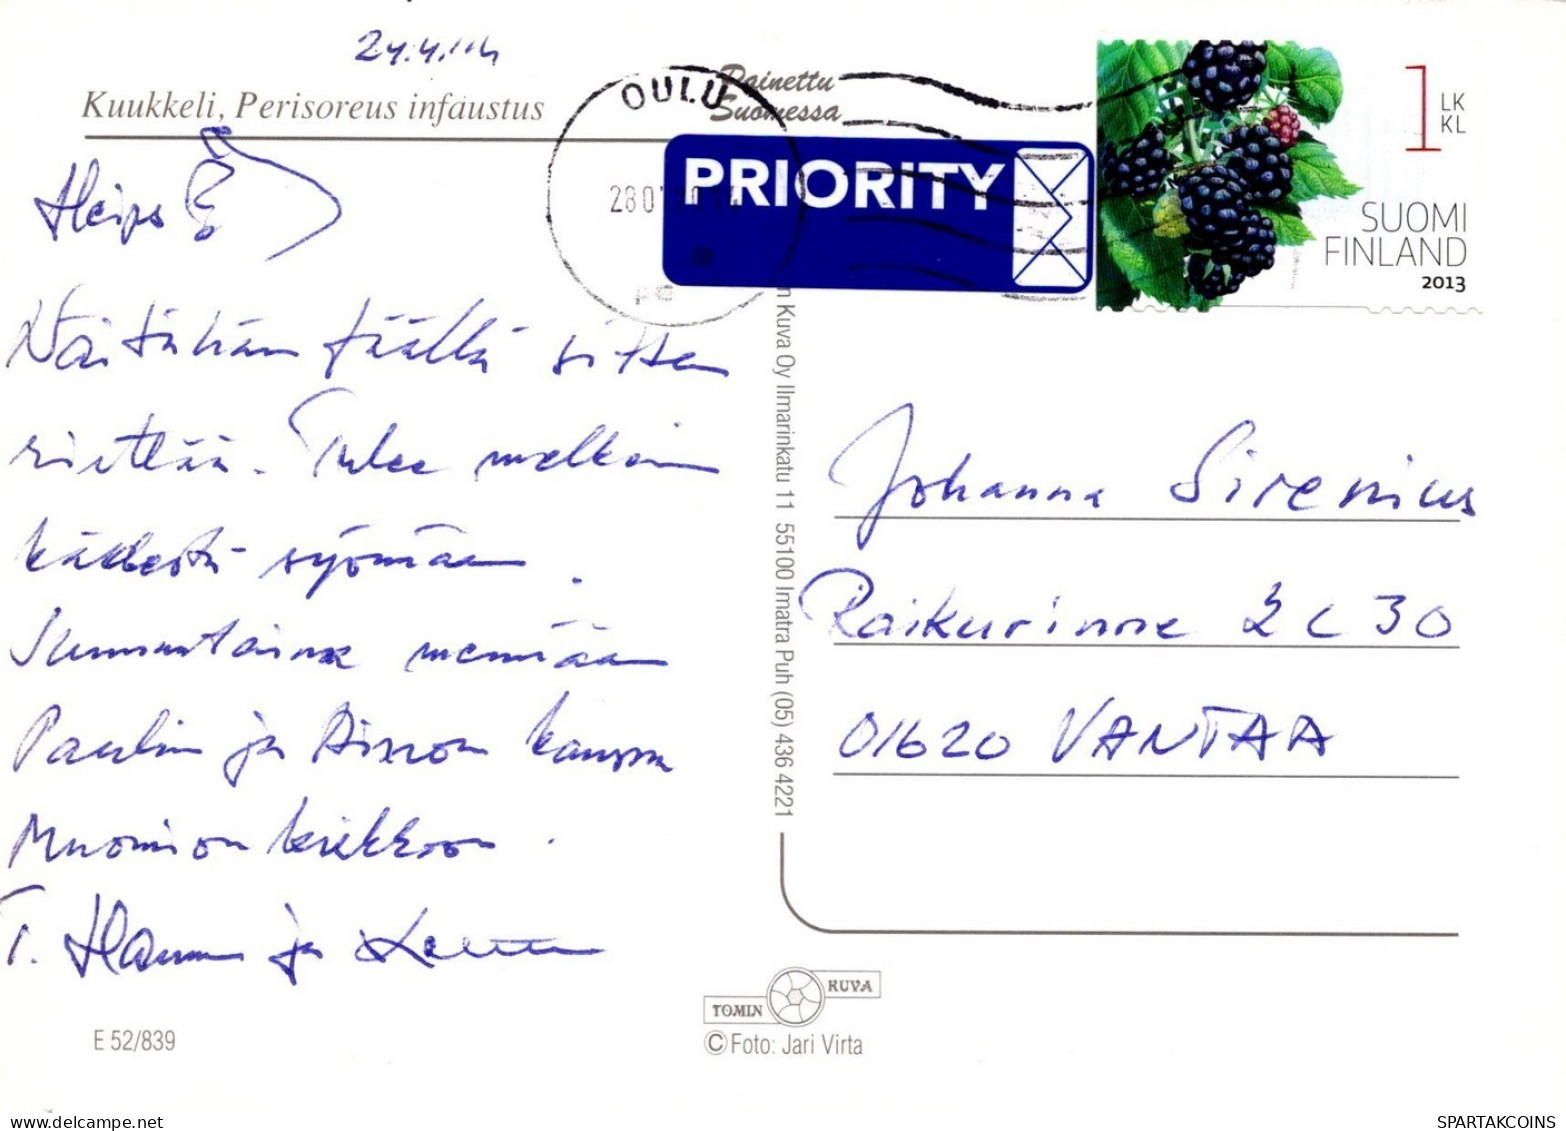 24.4.
Kuukkeli, Perisoreus infaustus
Painettu
Suomessa
OULU
PRIORITY
1 LK
KL
SUOMI
FINLAND
2013
Heips
Näitähän täällä sitten
riittää. Tulee melkein
kädestä syömään.
Sunnuntaina mennään
Paulin ja kanssa
Muonion kirkkoon.
T. Hannu ja
n Kuva Oy Ilmarinkatu 11 55100 Imatra Puh (05) 436 4221
Johanna Sirenius
Raikurinne 2 C 30
01620 VANTAA
TOMIN KUVA
© Foto: Jari Virta
E 52/839
SPARTAKCOINS